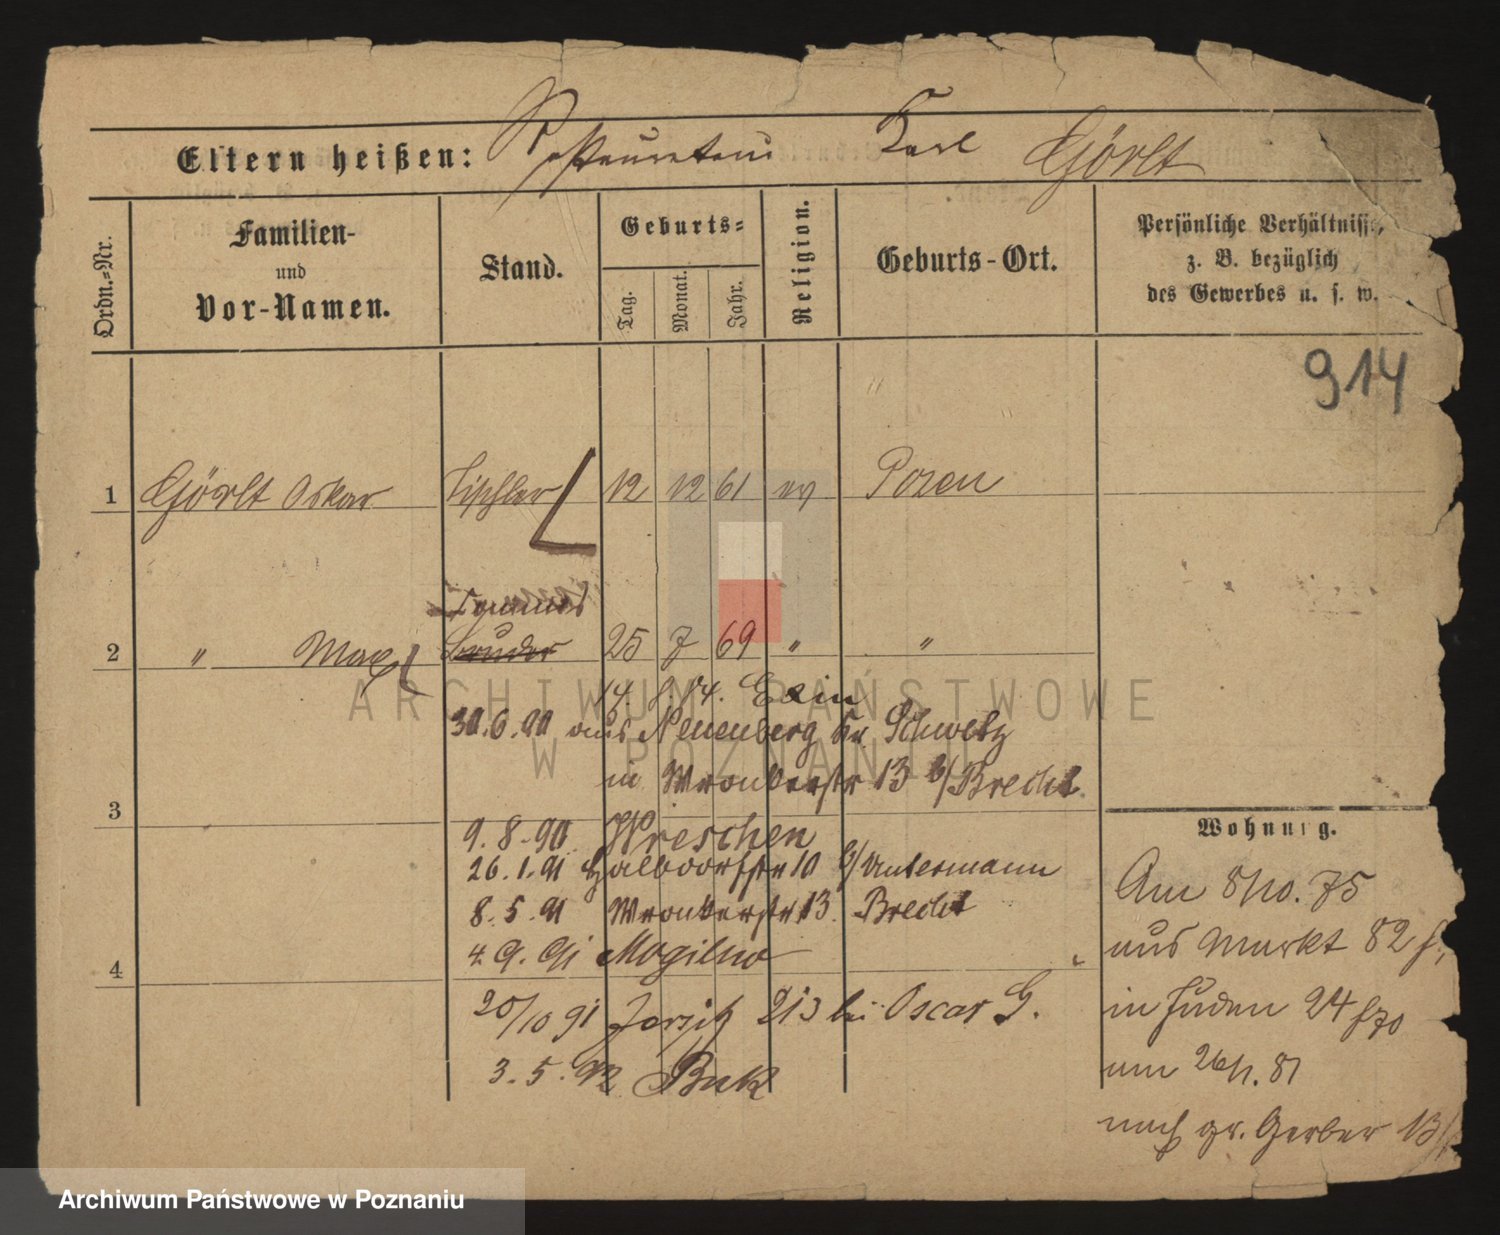 Eltern heißen: Restaurateur Karl Görlt
Ordn.-Nr.
Familien-
und
Vor-Namen.
Stand.
Geburts-
Tag.
Monat.
Jahr.
Religion.
Geburts-Ort.
Persönliche Verhältnisse,
z. B. bezüglich
des Gewerbes u. s. w.
914
1 Görlt Oskar Tischler 12 12 61 ev Posen
2 " Max 25 7 69 " "
30.6.90 aus Neuenberg Kr. Schwetz
in Wronkerstr 13 b/Brecht
3
9.8.90 Wreschen
26.1.91 Halbdorfstr 10 b/Untermann
8.5.91 Wronkerstr 13. Brecht
4
4.9.91 Mogilno
20/10 91 Jersitz 213 bei Oscar G.
3.5.92 Buk
Wohnung.
Am 8/10.75
aus Markt 82
in Juden 24
um 26/1.81
nach gr. Gerber 13
ARCHIWUM PAŃSTWOWE
W POZNANIU
Archiwum Państwowe w Poznaniu